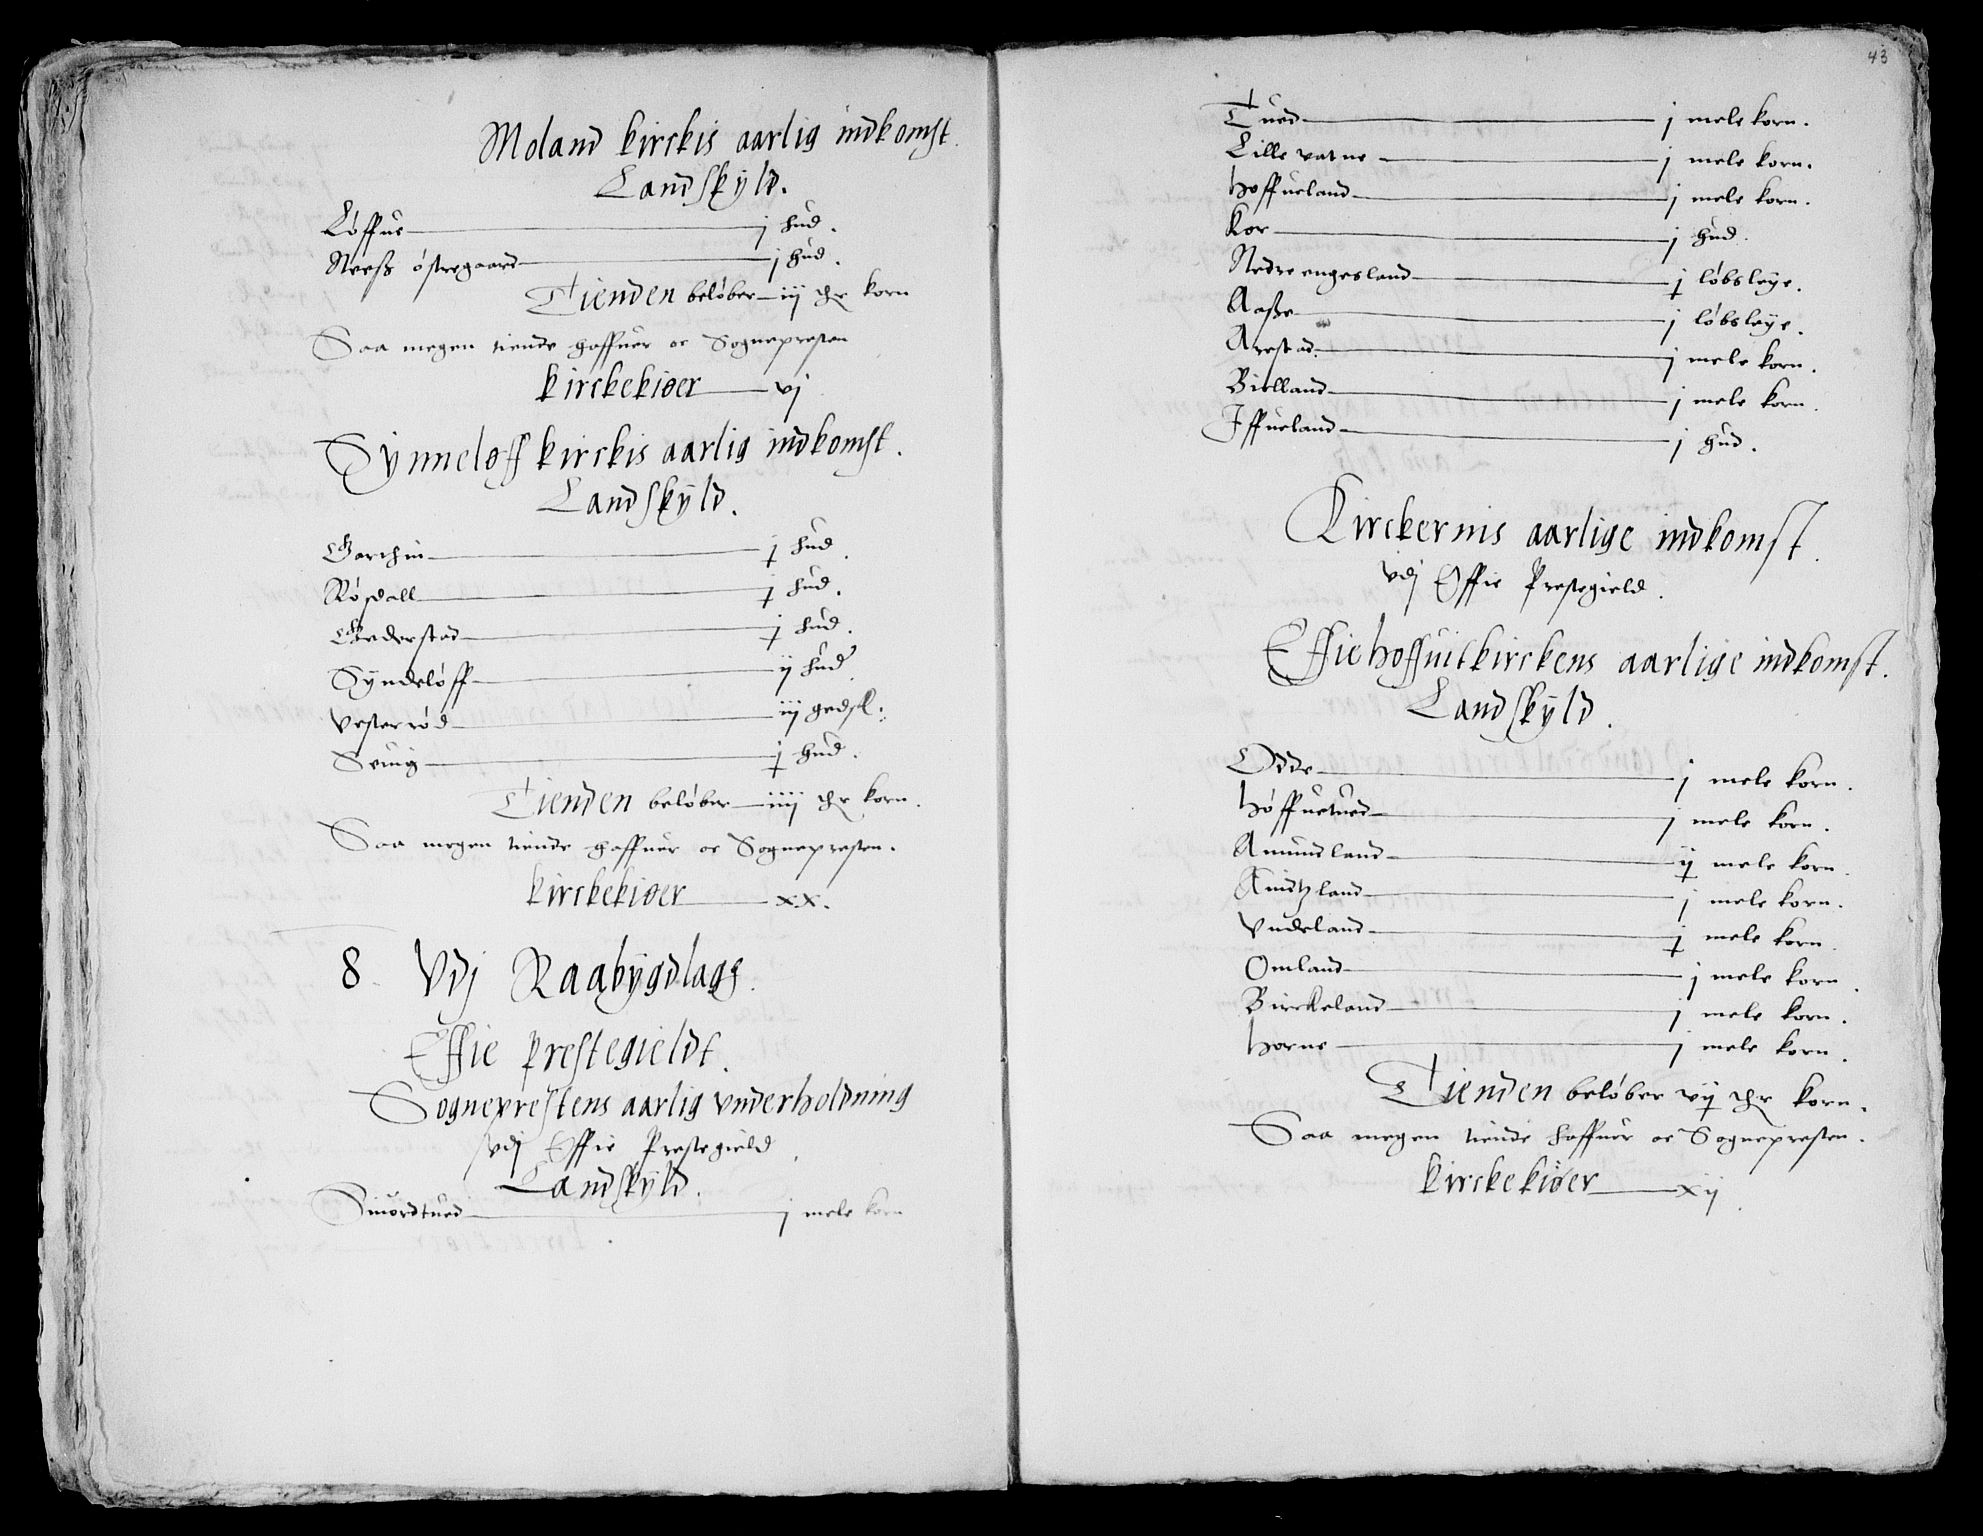 Moland kirckis aarlig indkomst.
Landskÿld.
Løffue j hud.
Neesß østregaard j hud.
Tienden beløber iij pr korn
Saa megen tiende haffuer oc Sognepresten
kirckekiøer vj
Sÿnneløff kirckis aarlig indkomst.
Landskÿld.
Garthin j hud.
Røsdall j hud.
Gederstad j hud.
Sÿndeløff ij hud
Vesterrød iij gedsk.
Seuig j hud.
Tienden beløber iiij pr korn.
Saa megen tiende haffuer oc Sognepresten.
kirckekiøer xx.
8 Vdj Raabÿgdlagg.
Effie prestegieldt.
Sogneprestens aarlig vnderholdning
vdj Effie Prestegield.
Landskÿld.
Smørdtued j mele korn
43
Tued j mele korn.
Lille vatne j mele korn.
Hoffueland j mele korn.
Kor j hud.
Nedre engesland j løbsleye.
Aasße j løbsleye.
Arestad j mele korn.
Bielland j mele korn.
Iffueland j hud.
Kirckernis aarlige indkomst.
vdj Effie Prestegield.
Effie hoffuitkirckens aarlige indkomst.
Landskÿld.
Odde j mele korn.
Høffuetued j mele korn.
Amundland ij mele korn.
Knidtzland j mele korn.
Vndeland j mele korn.
Omland j mele korn.
Birckeland j mele korn.
Horne j mele korn.
Tienden beløber vij pr korn.
Saa megen tiende haffuer oc Sognepresten.
kirckekiøer xij.